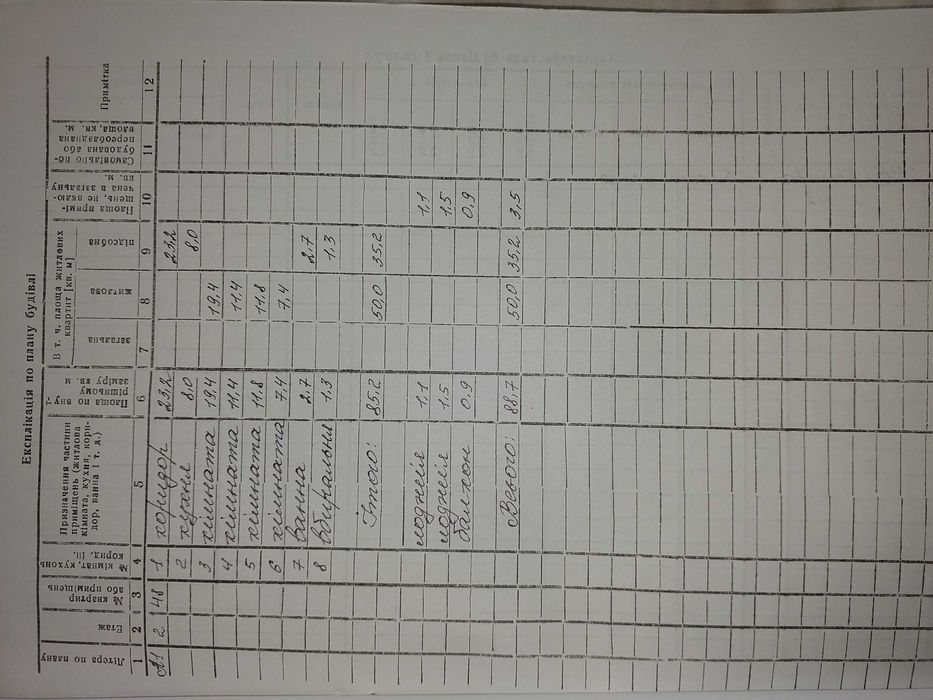 Експлікація по плану будівлі
Літора по плану
Етаж
№ квартир або приміщень
№ кімнат, кухонь корид. ін.
Призначення частини приміщень (житлова кімната, кухня, коридор, ванна і т. д.)
Площа по внутрішньому заміру кв. м
В т. ч. площа житлових квартит [кв. м]
загальна
житлова
підсобна
Площа приміщень, не включена в загальну кв. м.
Самовільно побудована або переобладнана площа, кв. м.
Примітка
1 2 3 4 5 6 7 8 9 10 11 12
А1 2 48 1 коридор 23,2 23,2
2 кухня 8,0 8,0
3 кімната 19,4 19,4
4 кімната 11,4 11,4
5 кімната 11,8 11,8
6 кімната 7,4 7,4
7 ванна 2.7 2.7
8 вбиральня 1.3 1.3
Итого: 85,2 50,0 35,2
лоджія 1.1 1,1
лоджія 1,5 1,5
балкон 0.9 0,9
Всього: 88,7 50,0 35,2 3,5